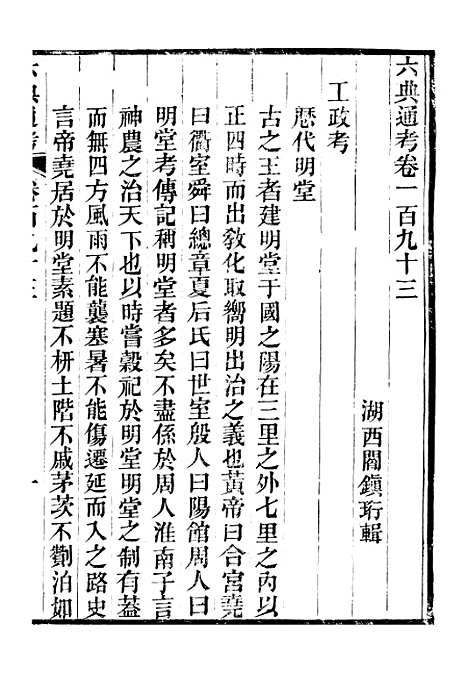 六典通考卷一百九十三
湖西閻鎮珩輯
工政考
歷代明堂
古之王者建明堂于國之陽在三里之外七里之內以
正四時而出敎化取嚮明出治之義也黃帝曰合宮堯
曰衢室舜曰總章夏后氏曰世室殷人曰陽館周人曰
明堂考傳記稱明堂者多矣不盡係於周人淮南子言
神農之治天下也以時嘗穀祀於明堂明堂之制有葢
而無四方風雨不能襲寒暑不能傷遷延而入之路史
言帝堯居於明堂素題不枅土階不戚茅茨不劗泊如
六典通考
卷百九十三
一